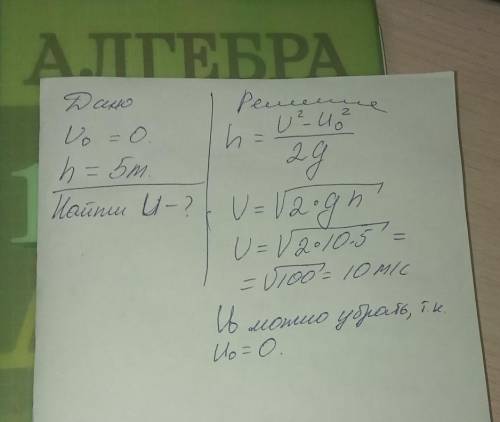 АЛГЕБРА
Дано
υ₀ = 0.
h = 5m.
Найти υ - ?
Решение
h = (υ² - υ₀²) / 2g
υ = √(2·gh)
υ = √(2·10·5) =
= √100 = 10 м/с
υ₀ можно убрать, т.к.
υ₀ = 0.